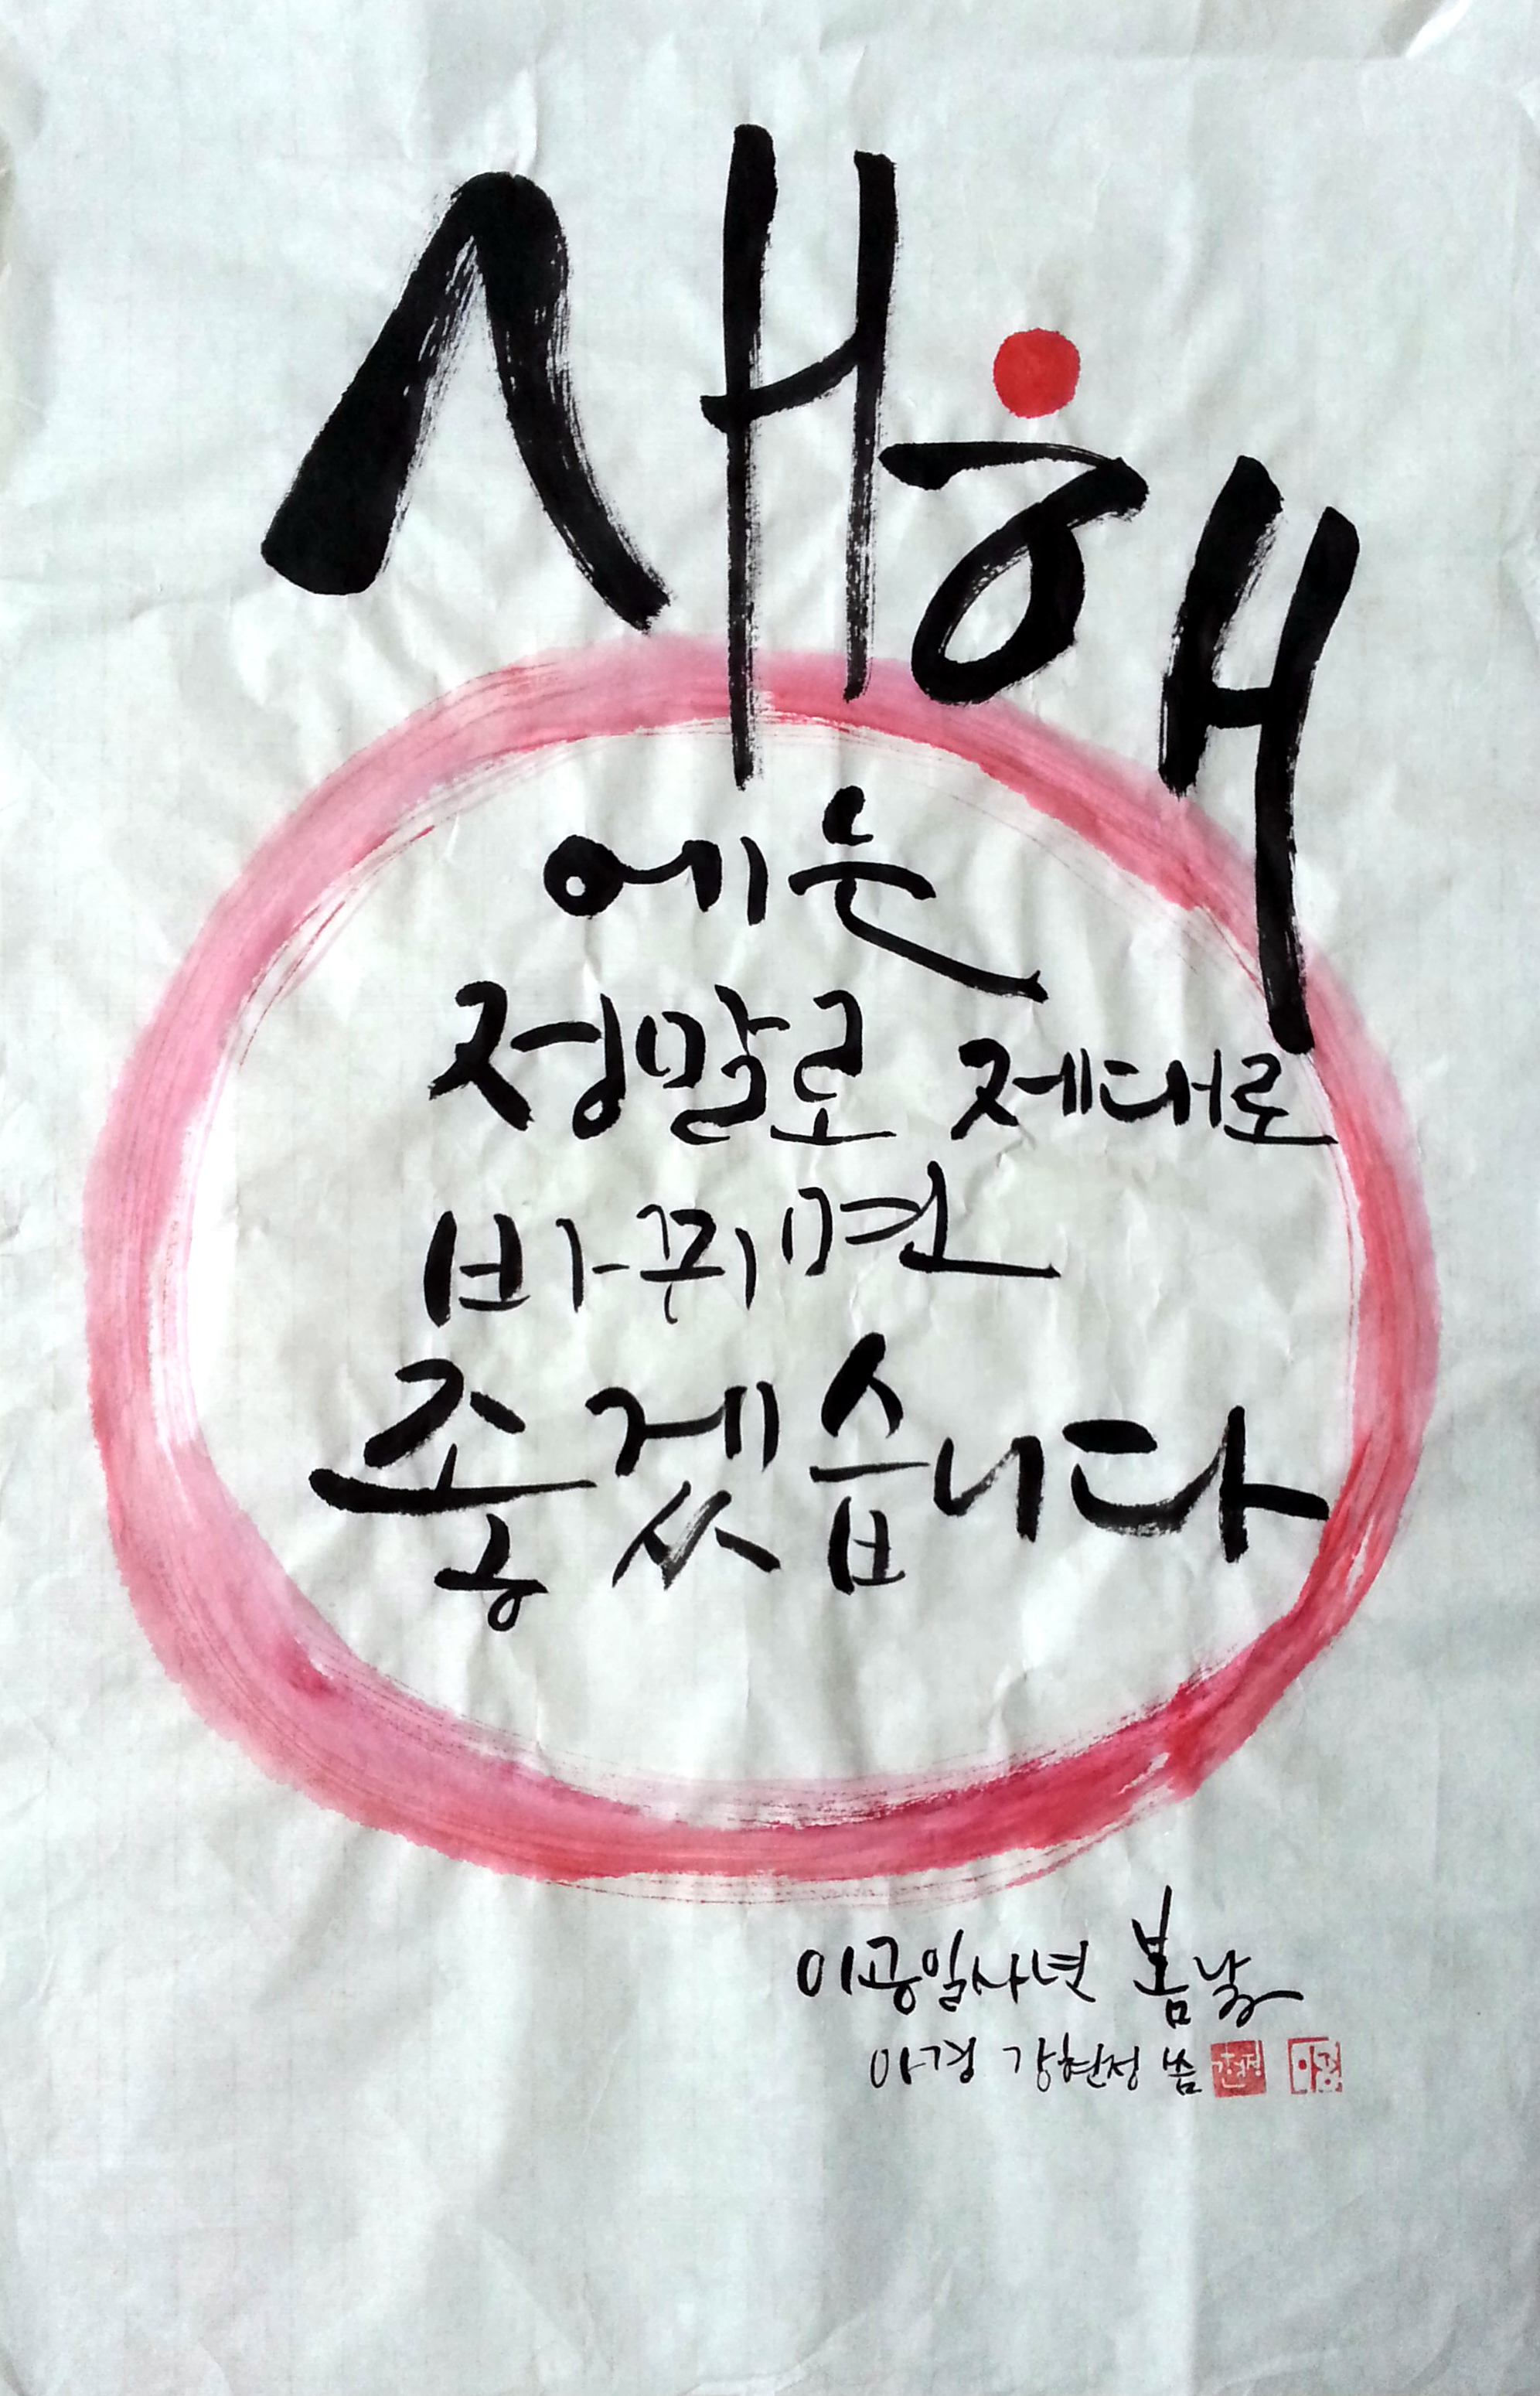 새해
에는
정말로 제대로
바뀌면
좋겠습니다
이공일사년 봄낮
아경 강현정 씀
현정 아경